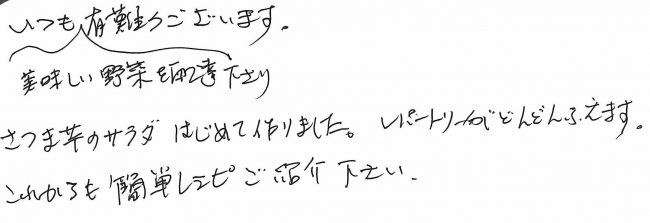 いつも有難うございます。
美味しい野菜を配達下さり
さつま芋のサラダ はじめて作りました。 レパートリーがどんどんふえます。
これからも簡単レシピご紹介下さい.